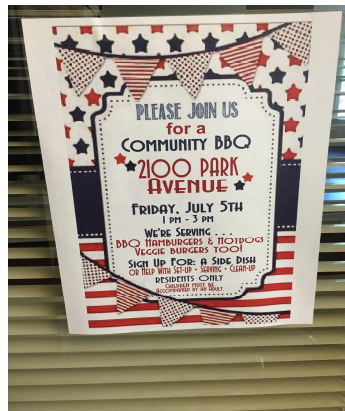 PLEASE JOIN US
for a
COMMUNITY BBQ
2100 PARK
AVENUE
FRIDAY, JULY 5TH
1 PM - 3 PM
WE'RE SERVING . . .
BBQ HAMBURGERS & HOTDOGS
VEGGIE BURGERS TOO!
SIGN UP FOR: A SIDE DISH
OR HELP WITH SET-UP - SERVING - CLEAN-UP
RESIDENTS ONLY
CHILDREN MUST BE
ACCOMPANIED BY AN ADULT